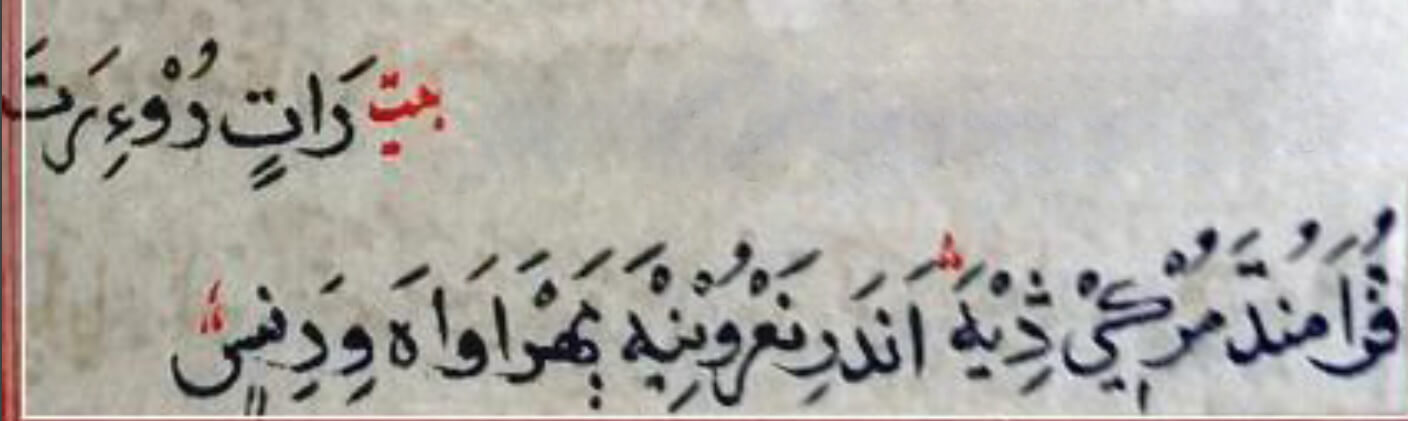 بيتّ رَاتٍ دُوْءِ رَتَ
فُرَا مُندَّ مُرْكِيْ ذِيْهَ اَندَرِ نَعْرُوْنِيْهَ بَهْرَا وَاهَ وِدِنسٍ